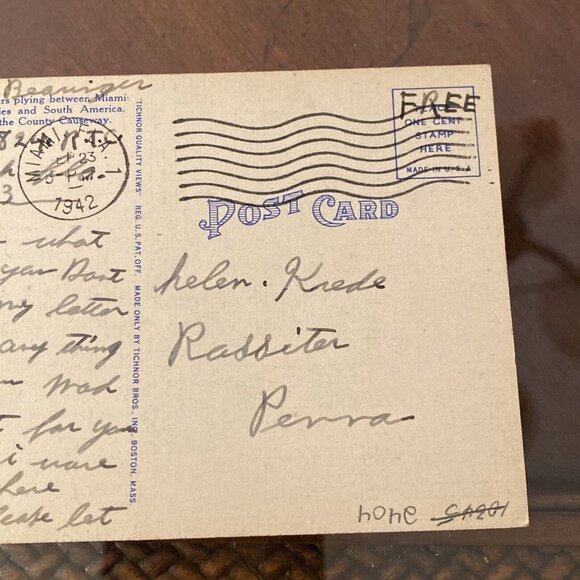 Beaniger
rs plying between Miami
ies and South America.
the County Causeway.
82 R.T.C.
MIAMI, FLA.
23
1942
3
what
you Dont
my letter
any thing
Mad
t for you
i ware
here
lease let
TICHNOR QUALITY VIEWS" REG. U.S. PAT. OFF. MADE ONLY BY TICHNOR BROS., INC., BOSTON, MASS.
FREE
PLACE
ONE CENT
STAMP
HERE
MADE IN U.S.A
POST CARD
helen. Krede
Rassiter
Penna
2404 SA201